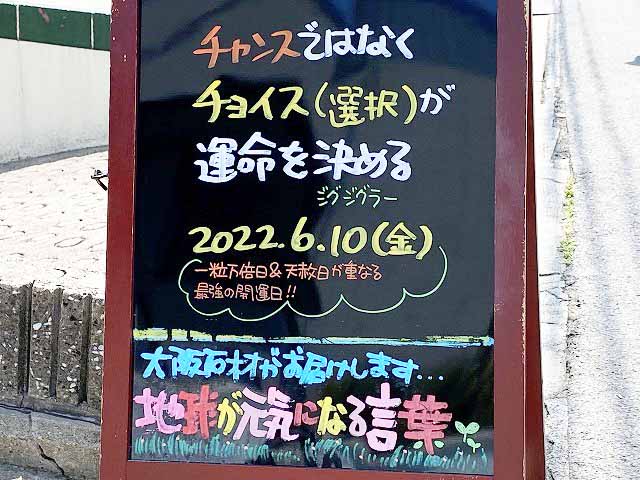 チャンスではなく
チョイス(選択)が
運命を決める
ジグジグラー
2022.6.10(金)
一粒万倍日&天赦日が重なる
最強の開運日!!
大阪石材がお届けします...
地球が元気になる言葉